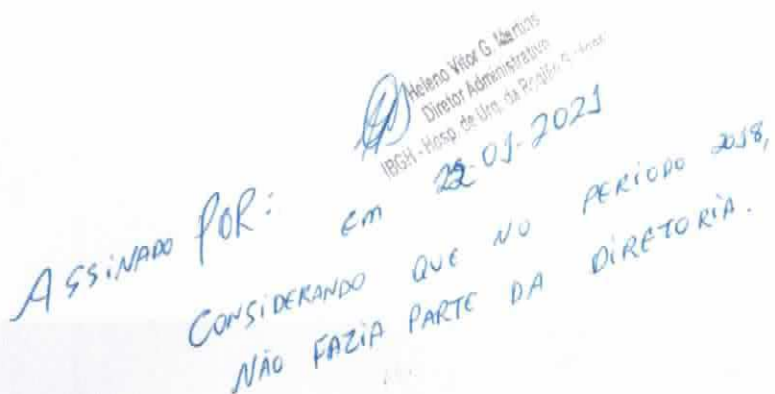 Heleno Vitor G. Martins
Diretor Administrativo
IBGH - Hosp de Urg. da Região
ASSINADO POR: em 22-01-2021
CONSIDERANDO QUE NO PERIODO 2018,
NÃO FAZIA PARTE DA DIRETORIA.